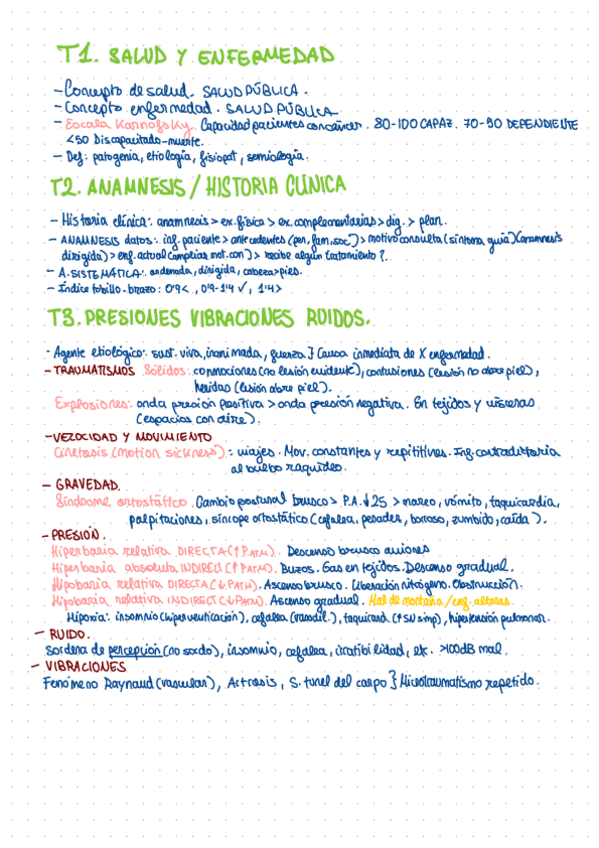 T1. SALUD Y ENFERMEDAD
- Concepto de salud. SALUD PÚBLICA.
- Concepto enfermedad. SALUD PÚBLICA
- Escala Karnofsky. Capacidad pacientes con cáncer. 80-100 CAPAZ. 70-50 DEPENDIENTE
<50 Discapacitado-muerte.
- Def: patogenia, etiología, fisiopat, semiología.
T2. ANAMNESIS / HISTORIA CLÍNICA
- Historia clínica: anamnesis > ex. física > ex. complementarias > dig. > plan.
- ANAMNESIS datos: inf. paciente > antecedentes (per, fam, soc) > motivo consulta (síntoma guía) (anamnesis
dirigida) > enf. actual (ampliar mot. con) > recibe algún tratamiento?.
- A. SISTEMÁTICA: ordenada, dirigida, cabeza > pies.
- Índice tobillo-brazo: 0'9<, 0'9-1'4 ✓, 1'4>
T3. PRESIONES VIBRACIONES RUIDOS.
- Agente etiológico: sust. viva, inanimada, fuerza } Causa inmediata de X enfermedad.
- TRAUMATISMOS Sólidos: conmociones (no lesión evidente), contusiones (lesión no abre piel),
heridas (lesión abre piel).
Explosiones: onda presión positiva > onda presión negativa. En tejidos y vísceras
(espacios con aire).
- VELOCIDAD Y MOVIMIENTO
Cinetosis (motion sickness): viajes. Mov. constantes y repititivos. Inf. contradictoria
al bulbo raquídeo.
- GRAVEDAD.
Síndrome ortostático. Cambio postural brusco > P.A. ↓ 25 > mareo, vómito, taquicardia,
palpitaciones, síncope ortostático (cefalea, pesadez, borroso, zumbido, caída).
- PRESIÓN.
Hiperbaria relativa DIRECTA (↑ PATM). Descenso brusco aviones
Hiperbaria absoluta INDIRECT (↑ PATM). Buzos. Gas en tejidos. Descenso gradual.
Hipobaria relativa DIRECTA (↓ PATM). Ascenso brusco. Liberación nitrógeno. Obstrucción.
Hipobaria relativa INDIRECT (↓ PATM). Ascenso gradual. Mal de montaña / enf. alturas.
Hipoxia: insomnio (hiperventilación), cefalea (vasodil.), taquicard. (↑ SN simp), hipertensión pulmonar.
- RUIDO.
Sordera de percepción (no sordo), insomnio, cefalea, irratibilidad, etc. >100dB mal.
- VIBRACIONES
Fenómeno Raynaud (vascular), Artrosis, S. tunel del carpo } Microtraumatismo repetido.